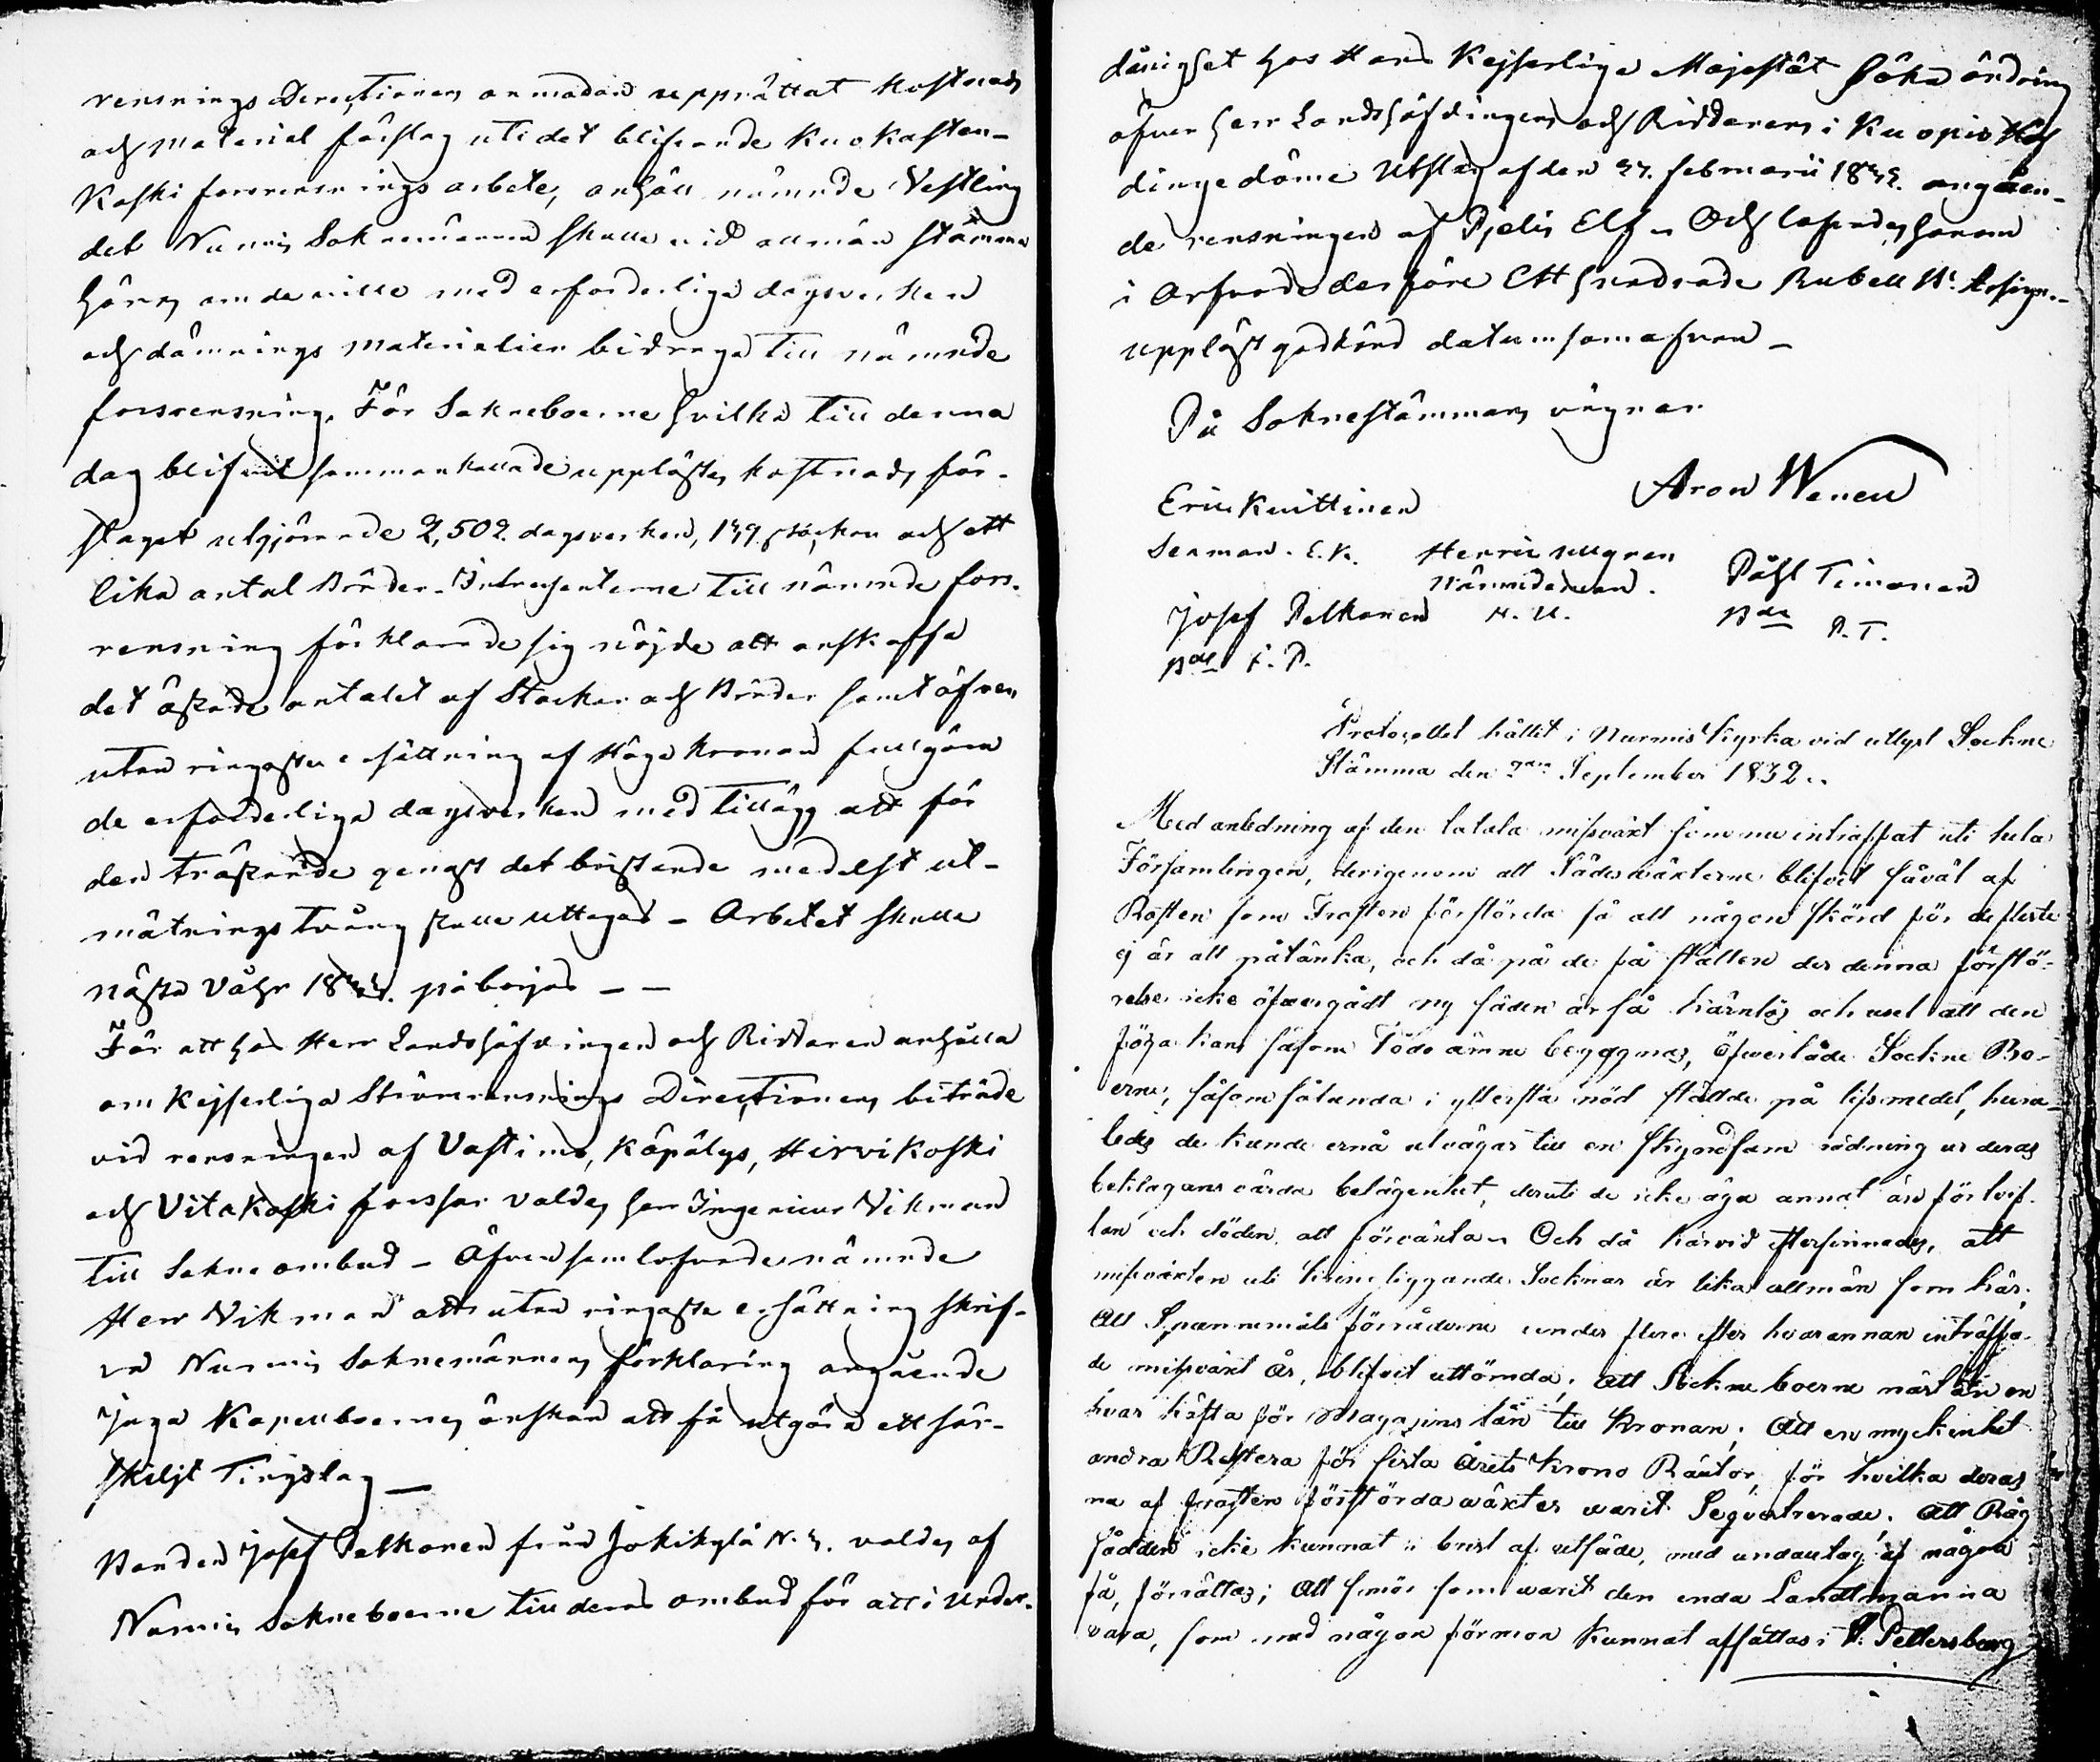 rensnings Directionens anmodan upprättat Kostnads
och Material förslag uti det blifvande Kuokasten-
Koski forsrensnings arbete, anhöll nämnde Vestling
det Nurmis Soknemännen skulle vid allmän stämma
höras om de wille med erforderliga dagsverken
och dämnings materialier bidraga till nämnde
forsrensning. För Sokneboerne hvilka till denna
dag blifvit sammankallade upplästes kostnads för-
slaget utgjörande 2,502 dagsverken, 139 stockar och ett
lika antal Bräder. Intressenterne till nämnde fors-
rensning förklarade sig nöjde att anskaffa
det åsatte antalet af Stockar och Bräder samt äfven
utan ringaste ersättning af Höga Kronan fullgöra
de erforderliga dagsverken med tillägg att för
den tredskande genast det bristande medelst ut-
mätnings tvång skulle uttagas - Arbetet skulle
nästa Våhr 1833. påbörjas - -
För att hos Herr Landshöfdingen och Riddaren anhålla
om Kejserliga Strömrensnings Directionens biträde
vid rensningen af Vastimo, Käpälys, Hirvikoski
och Vitakoski forssar valdes herr Ingenieur Vikman
till Sokne ombud - Äfvensom lofvade nämnde
Herr Vikman att utan ringaste ersättning skrif-
va Nurmis Soknemännens förklaring angående
Juga Kapellboernes önskan att få utgöra ett sär-
skiljt Tingslag -
Bonden Josef Pelkonen från Jokikylä N. 3. valdes af
Nurmis Sokneboerne till deras ombud för att i under-
dånighet hos Hans Kejserliga Majestät söka ändring
öfver herr Landshöfdingens och Riddarens i Kuopio Höf
dingedöme Utslag af den 27. februarii 1832. angåen-
de rensningen af Pjelis Elf - Och lofvades honom
i Arfvode derföre Ett hundrade Rubel B: Assign.-
uppläst godkänd datum som ofvan -
På Soknestämmans vägnar
Aron Wenell
Eric Kuittinen
Sexman. E. K.
Henric Ullgren
Nämndeman.
H. U.
Påhl Timonen
Bde P. T.
Josef Pelkonen
Bde I. P.
Protocollet hållit i Nurmis Kyrka vid utlyst Sockne
Stämma den 9de September 1832..
Med anledning af den totala missväxt som nu inträffat uti hela
Församlingen, derigenom att Sädesväxterne blifvit såväl af
Rosten som Frosten förstörda så att någon skörd för de fleste
ej är att påtänka, och då på de få ställen der denna förstö-
relse icke öfvergådt ny säden är så kärnlös och usel att den
föga kan såsom födo ämne begagnas, Öfwerlade Sockne Bo-
erne, såsom sålunda i yttersta nöd stadde på lifsmedel, huru-
ledes de kunde ernå utvägar till en skyndsam rädning ur deras
beklagansvärda belägenhet, deruti de icke äga annat än förtvif-
lan och döden att förvänta - Och då härvid eftersinnades, att
missväxten uti kring liggande Socknar är lika allmän som här;
Att Spannemåls förråderne under flere efter hvarannan inträffa-
de missväxt År, blifvit uttömda; Att Sockne boerne näst än en
hvar häfta för Magazins lån till Kronan; Att en myckenhet
andra Restera för sista Årets Krono Räntor, för hvilka deras
nu af frosten förstörda wäxter warit Seqvestrerade; Att Råg
sådden icke kunnat i brist af utsäde, med undantag af några
få, förrättas; Att smör som warit den enda Landtmanna
vara, som med någon förmon kunnat afsättas i St. Pettersburg